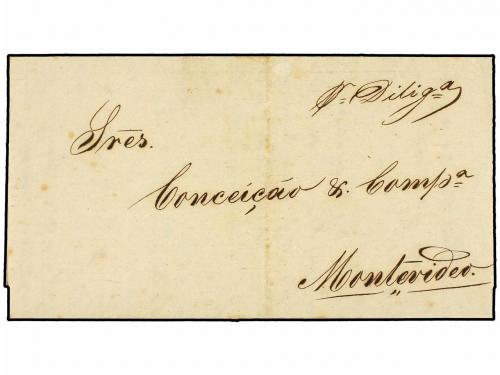 Pr. Diligª
Sres.
Conceição &. Compª
Montevideo.